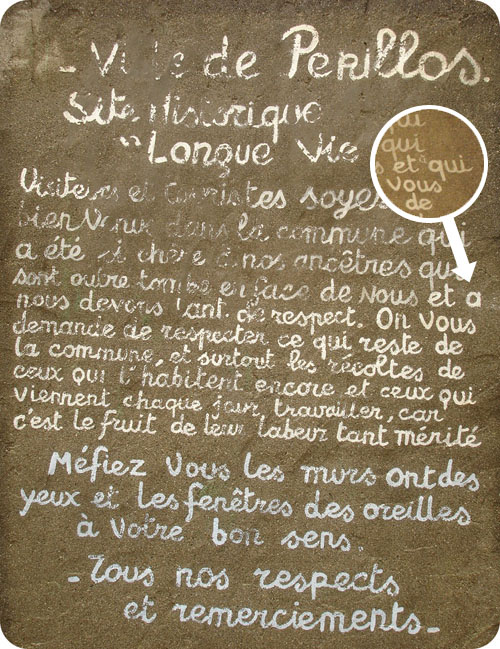 - Ville de Perillos.
Site Historique
"Longue Vie
Visiteurs et touristes soyez
bien Venue dans la commune qui
a été si chère à nos ancêtres qui
sont outre tombe en face de Nous et a
nous devons tant de respect. On Vous
demande de respecter ce qui reste de
la commune, et surtout les récoltes de
ceux qui l'habitent encore et ceux qui
viennent chaque jour, travailler, car
c'est le fruit de leur labeur tant mérité
Méfiez Vous les murs ont des
yeux et les fenêtres des oreilles
à Votre bon sens.
- Tous nos respects
et remerciements -
qui
qui
et à qui
Vous
de